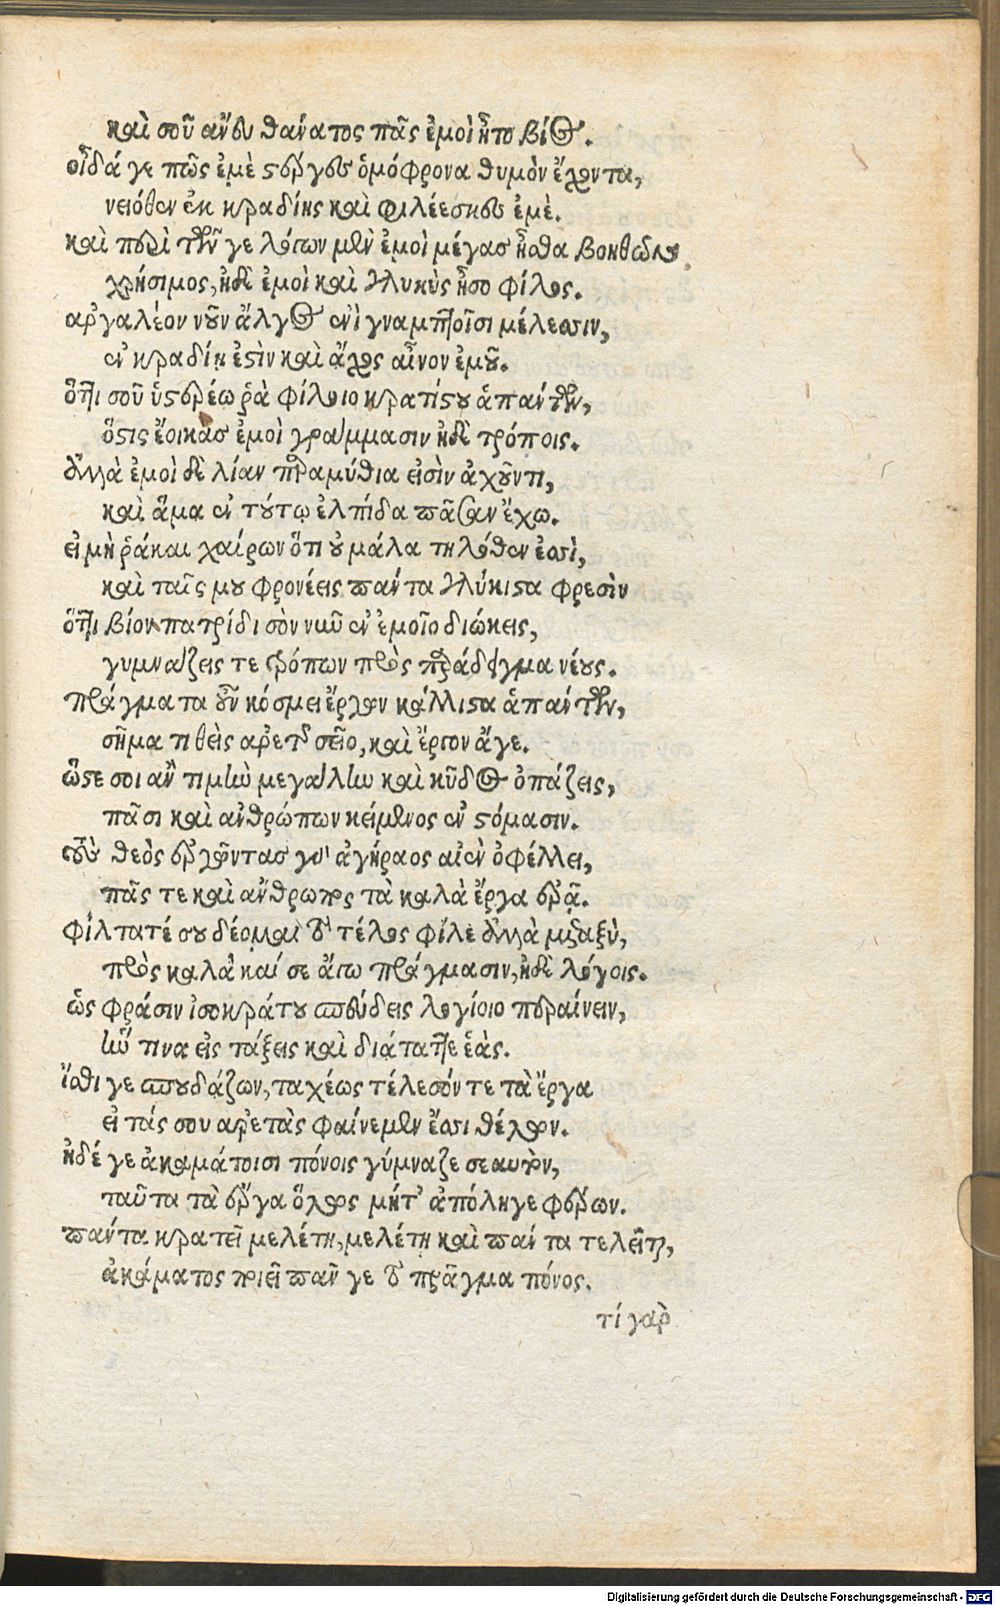 καὶ σοῦ ἄνευ θάνατος πᾶς ἐμοὶ ἦτο βίος.
οἶδά γε πῶς ἐμὲ στέργεις ὁμόφρονα θυμὸν ἔχοντα,
νειόθεν ἐκ κραδίης καὶ φιλέεσκες ἐμέ.
καὶ περὶ τῶν γε λόγων μὲν ἐμοὶ μέγας ἦσθα βοηθῶν
χρήσιμος, ἠδὲ ἐμοὶ καὶ γλυκὺς ἦσο φίλος.
ἀργαλέον νῦν ἄλγος ἐνὶ γναμπτοῖσι μέλεσσιν,
ἐν κραδίῃ ἐστὶν καὶ ἄχος αἶνον ἐμοῦ.
ὅττι σοῦ ὑστερέω ῥὰ φίλοιο κρατίστου ἁπάντων,
ὅστις ἔοικας ἐμοὶ γράμμασιν ἠδὲ τρόποις.
ἀλλὰ ἐμοὶ δὲ λίαν παραμύθια εἰσὶν ἀχοῦντι,
καὶ ἅμα ἐν τούτῳ ἐλπίδα πᾶσαν ἔχω.
εἰ μὴ ῥάκαι χαίρων ὅτι οὐ μάλα τηλόθεν ἐσσὶ,
καὶ ταῖς μου φρονέεις πάντα γλύκιστα φρεσὶν
ὅττι βίον πατρίδι σὸν νῦν ἐν ἐμοῖο διώκεις,
γυμνάζεις τε τρόπων πρὸς παράδειγμα νέους.
πράγματα οὖν κόσμει ἔργων κάλλιστα ἁπάντων,
σῆμα τιθεὶς ἀρετῆς σεῖο, καὶ ἔργον ἄγε.
ὥστε σοι ἂν τιμὴν μεγάλην καὶ κῦδος ὀπάζεις,
πᾶσι καὶ ἀνθρώπων κείμενος ἐν στόμασιν.
θεὸς ἀγήραος αἰὲν ὀφέλλει,
πᾶς τε καὶ ἄνθρωπος τὰ καλὰ ἔργα ἐρᾷ.
φίλτατέ σου δέομαι τὸ τέλος φίλε ἀλλὰ μεταξὺ,
πρὸς καλὰ καί σε ἄγω πράγμασιν, ἠδὲ λόγοις.
ὡς φράσιν ἰσοκράτου σπεύδεις λογίοιο περαίνειν,
ἥν τινα εἰς τάξεις καὶ διάταττε ἑάς.
ἴσθι γε σπουδάζων, ταχέως τέλεσόν τε τὰ ἔργα
εἰ τάς σου ἀρετὰς φαίνεμεν ἔσσι θέλων.
ἠδέ γε ἀκαμάτοισι πόνοις γύμναζε σεαυτὸν,
ταῦτα τὰ ἔργα ὅλως μήτ' ἀπόληγε φέρων.
πάντα κρατεῖ μελέτη, μελέτη καὶ πάντα τελεῖται,
ἀκάματος ποιεῖ πᾶν γε τὸ πρᾶγμα πόνος.
τί γὰρ
Digitalisierung gefördert durch die Deutsche Forschungsgemeinschaft - DFG